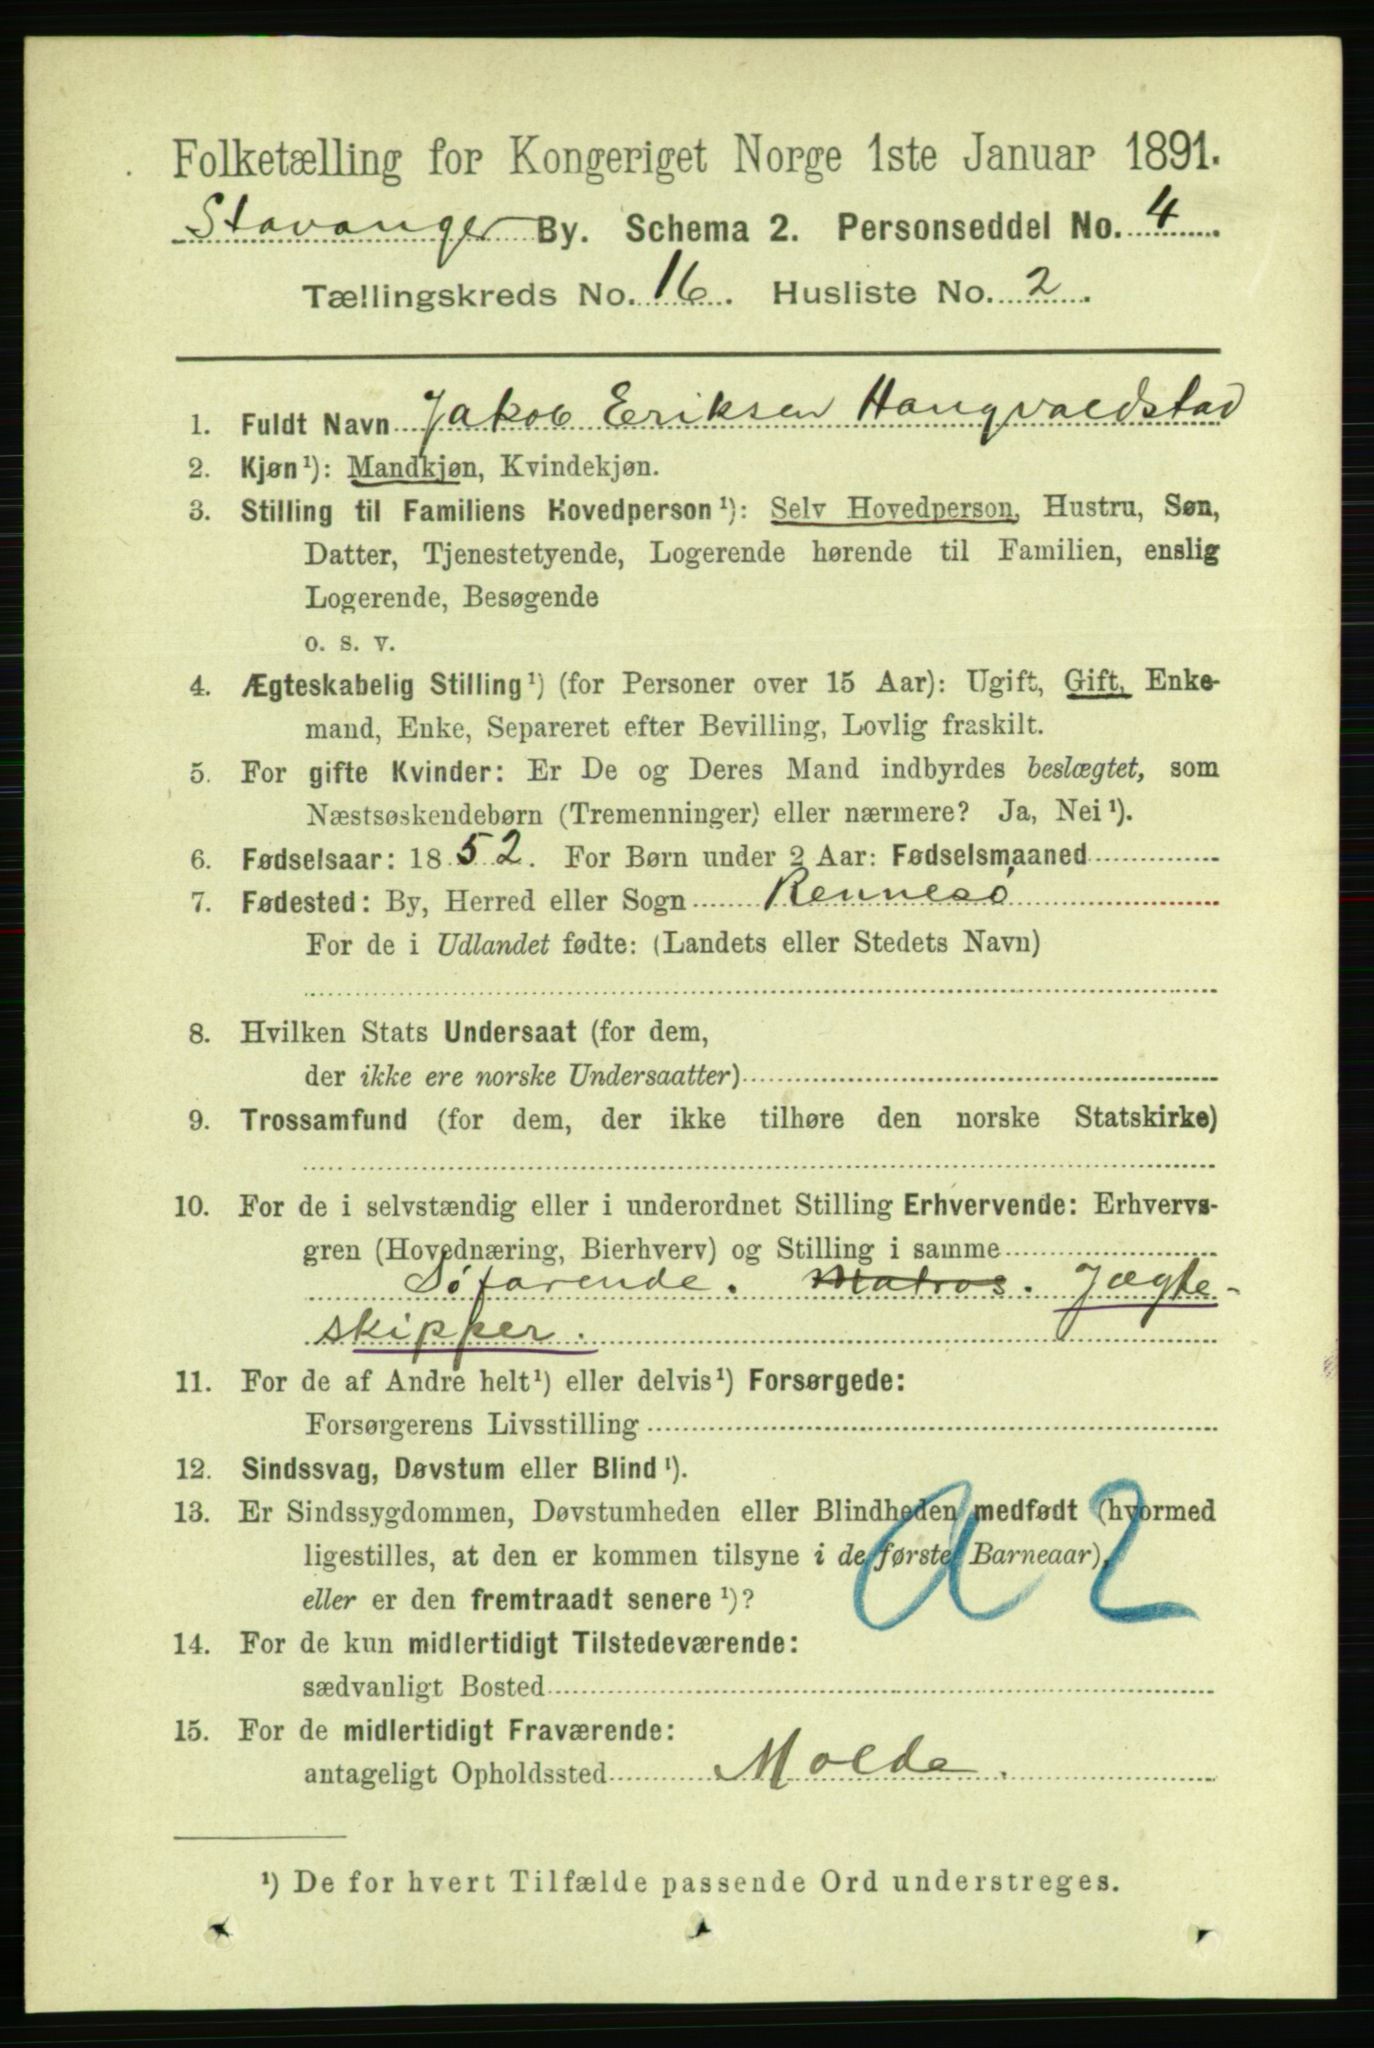 Folketælling for Kongeriget Norge 1ste Januar 1891.
Stavanger By. Schema 2. Personseddel No. 4
Tællingskreds No. 16. Husliste No. 2.
1. Fuldt Navn Jakob Eriksen Haugvaldstad
2. Kjøn¹): Mandkjøn, Kvindekjøn.
3. Stilling til Familiens Hovedperson¹): Selv Hovedperson, Hustru, Søn,
Datter, Tjenestetyende, Logerende hørende til Familien, enslig
Logerende, Besøgende
o. s. v.
4. Ægteskabelig Stilling¹) (for Personer over 15 Aar): Ugift, Gift, Enke-
mand, Enke, Separeret efter Bevilling, Lovlig fraskilt.
5. For gifte Kvinder: Er De og Deres Mand indbyrdes beslægtet, som
Næstsøskendebørn (Tremenninger) eller nærmere? Ja, Nei¹).
6. Fødselsaar: 1852. For Børn under 2 Aar: Fødselsmaaned
7. Fødested: By, Herred eller Sogn Rennesø
For de i Udlandet fødte: (Landets eller Stedets Navn)
8. Hvilken Stats Undersaat (for dem,
der ikke ere norske Undersaatter)
9. Trossamfund (for dem, der ikke tilhøre den norske Statskirke)
10. For de i selvstændig eller i underordnet Stilling Erhvervende: Erhvervs-
gren (Hovednæring, Bierhverv) og Stilling i samme
Søfarende. Matros. Jægte-
skipper.
11. For de af Andre helt¹) eller delvis¹) Forsørgede:
Forsørgerens Livsstilling
12. Sindssvag, Døvstum eller Blind¹).
13. Er Sindssygdommen, Døvstumheden eller Blindheden medfødt (hvormed
ligestilles, at den er kommen tilsyne i de første Barneaar),
eller er den fremtraadt senere¹)?
a2
14. For de kun midlertidigt Tilstedeværende:
sædvanligt Bosted
15. For de midlertidigt Fraværende:
antageligt Opholdssted Molde.
¹) De for hvert Tilfælde passende Ord understreges.